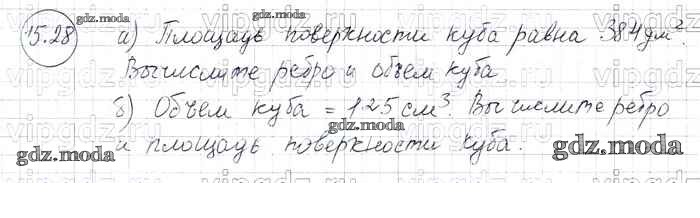 15.28 а) Площадь поверхности куба равна 384дм².
Вычислите ребро и объем куба
б) Объем куба = 125см³. Вычислите ребро
и площадь поверхности куба.
gdz.moda
gdz.moda
gdz.moda
gdz.moda